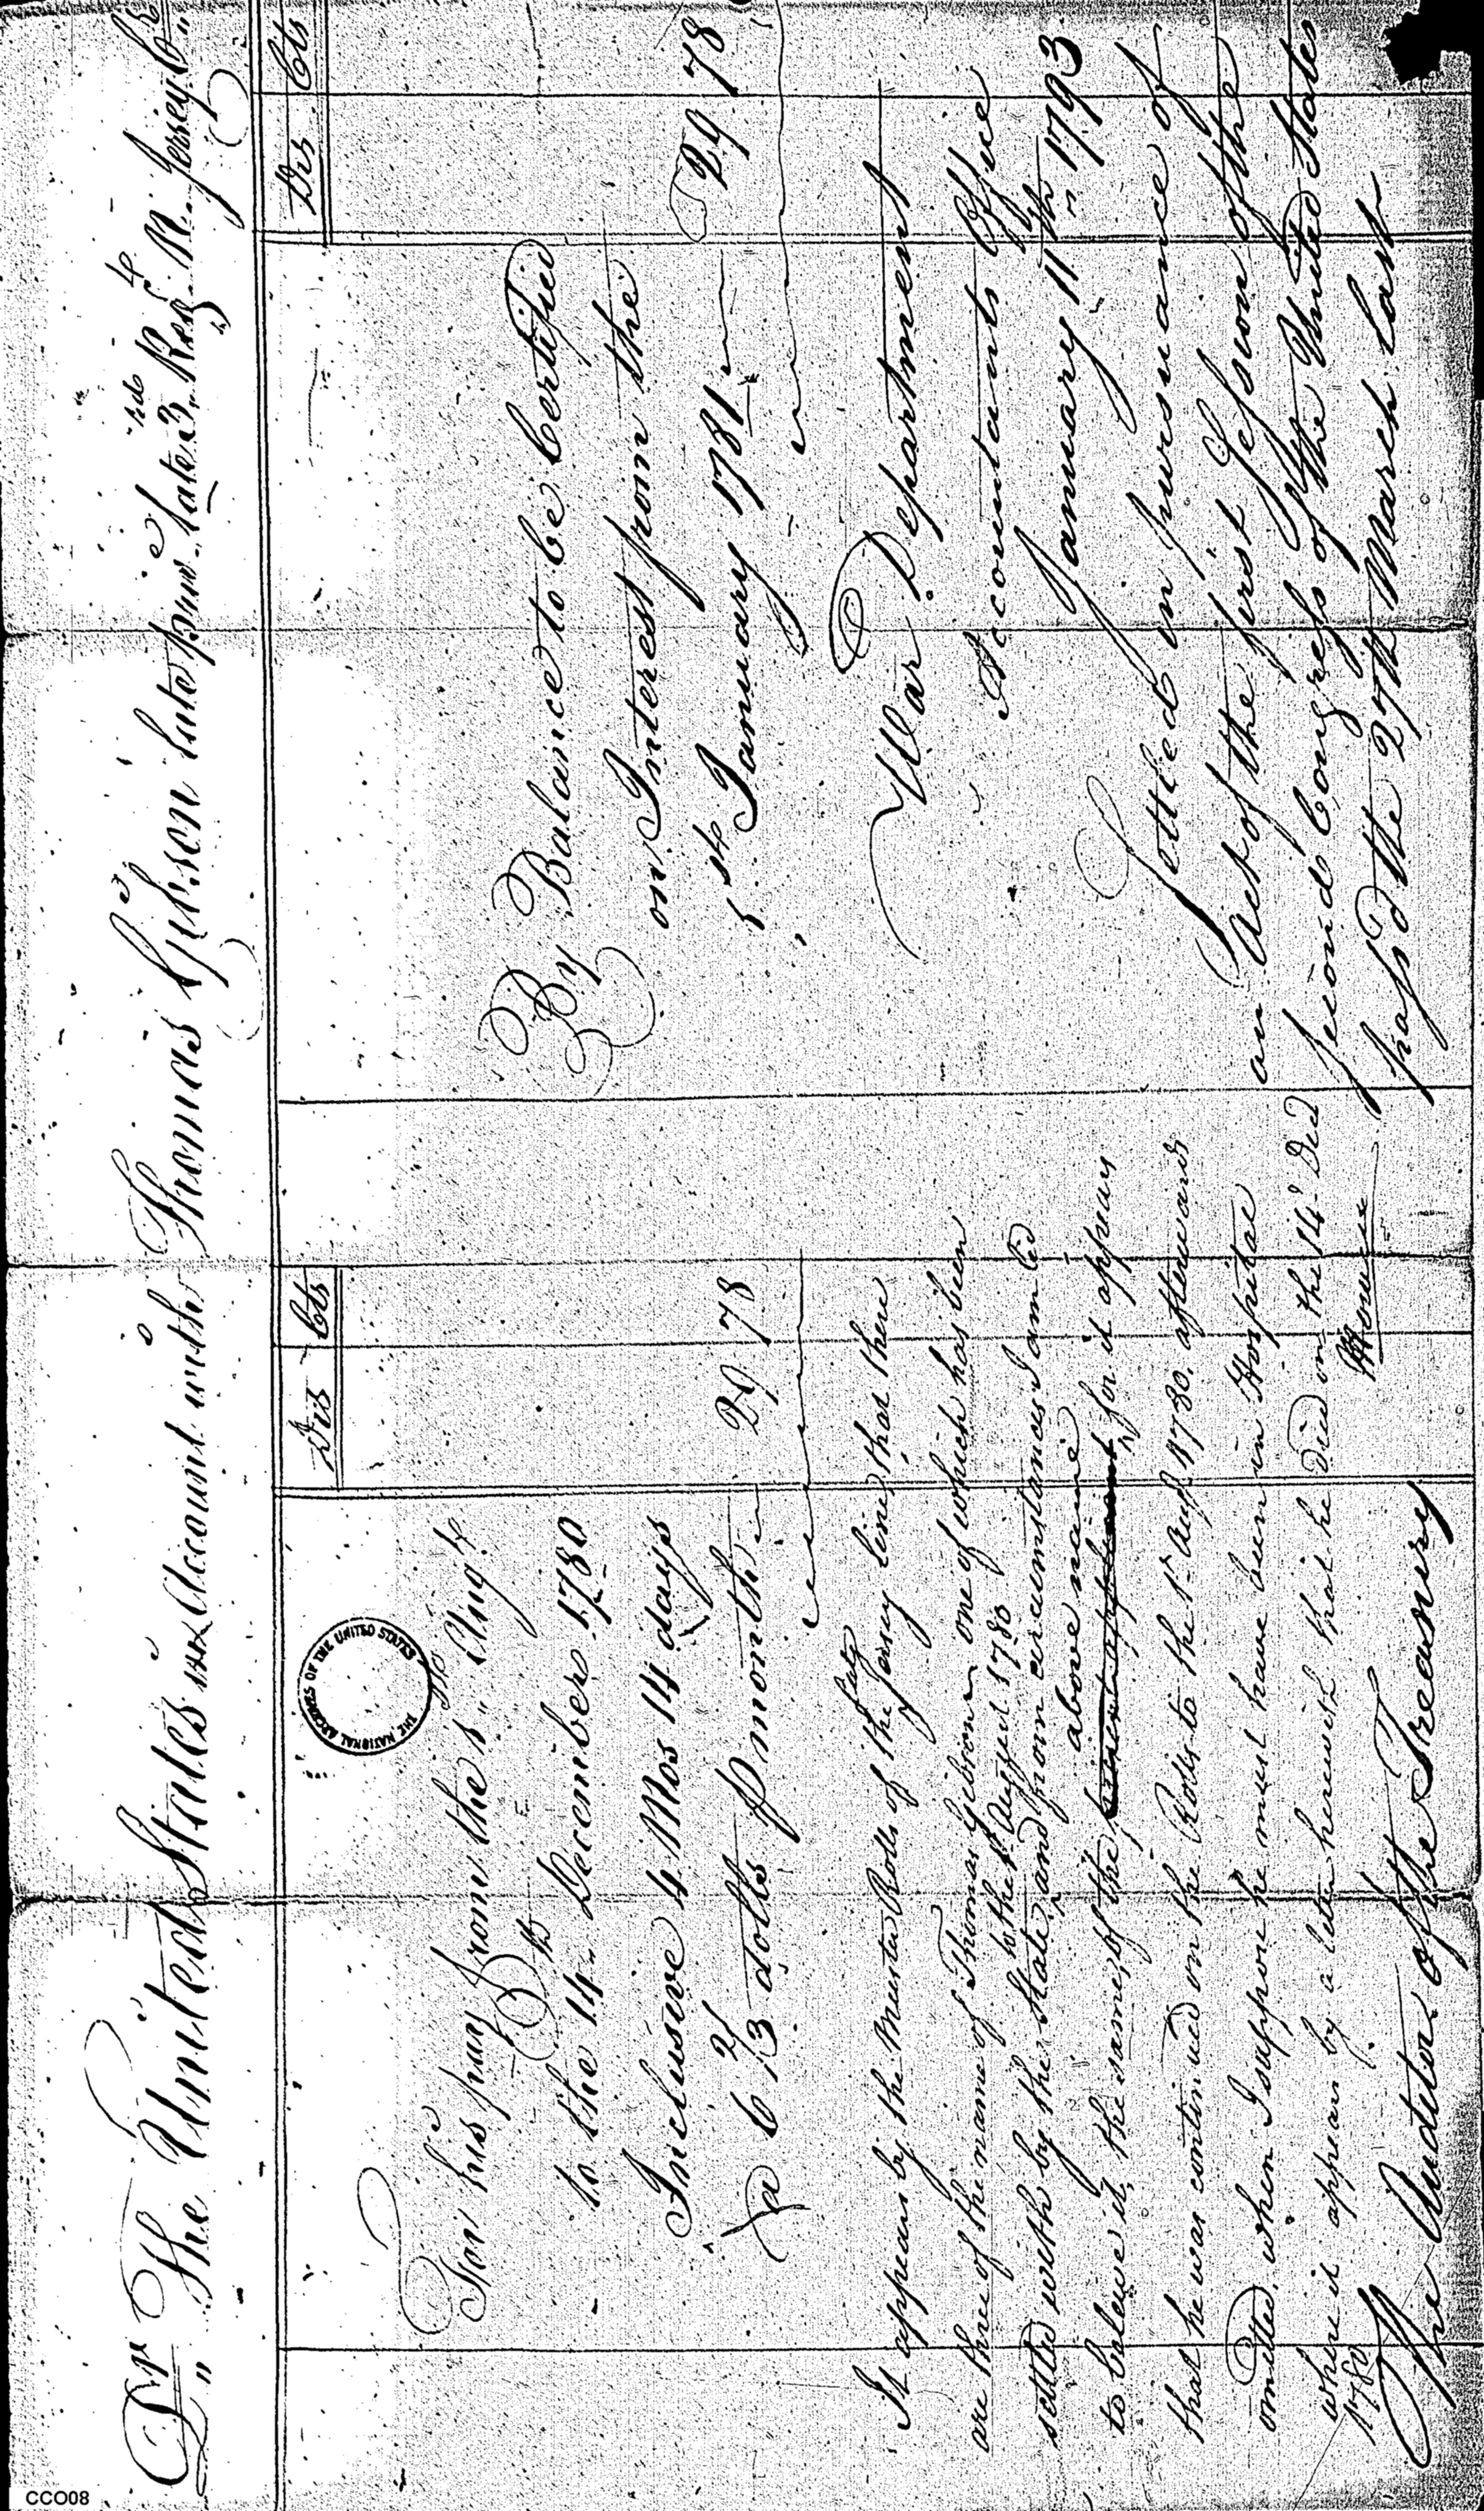 Dr The United States in Account with Thomas Gibson late priv.. late 3 Regt N. Jersey
Drs Cts
THE NATIONAL ARCHIVES OF THE UNITED STATES
For his pay from the 1st Augt
to the 14th December 1780
Inclusive 4 Mos 14 days
@ 6 2/3 dolls P month 29 78
It appears by the Muster Rolls of the late Jersey line that there
are three of the name of Thomas Gibson one of which has been
settled with by the State to the 1st August 1780 and from circumstances I am led
to beleive it the same of the above name for it appears
that he was continued on the Rolls to the 1st Augt 1780, afterwards
omitted, when I suppose he must have been in Hospital
where it appears by a letter herewith that he died on the 14 Decr
1780
The Auditor of the Treasury
Drs Cts
By Balance to be Certified
on Interest from the
1st January 1781 29 78
War Department
Accountants Office
January 11th 1793
Settled in pursuance of
an act of the first Session of the
second Congress of the United States
pass'd the 27th March last
CCO08